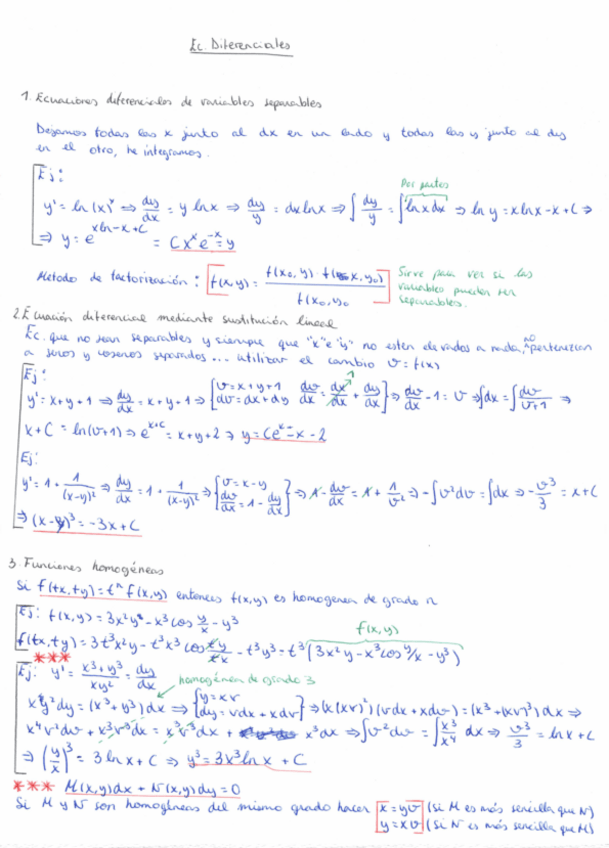 Ec. Diferenciales
1. Ecuaciones diferenciales de variables separables
Dejamos todas las x junto al dx en un lado y todas las y junto al dy
en el otro, he integramos.
Ej:
Por partes
y' = ln (x)^y ⇒ dy/dx = y ln x ⇒ dy/y = dx ln x ⇒ ∫ dy/y = ∫ ln x dx ⇒ ln y = x ln x - x + C ⇒
⇒ y = e^(x ln - x + C) = C x^x e^-x = y
Metodo de factorización: f(x,y) = f(x0, y) · f(x, y0) / f(x0, y0 Sirve para ver si las variables pueden ser separables.
2. Ecuación diferencial mediante sustitución lineal
Ec. que no sean separables y siempre que "x" e "y" no esten elevados a nada, no pertenezcan
a senos y cosenos separados... utilizar el cambio v = f(x)
Ej:
y' = x + y + 1 ⇒ dy/dx = x + y + 1 ⇒ { v = x + y + 1 dv = dx + dy dv/dx = dx/dx 1 + dy/dx } ⇒ dv/dx - 1 = v ⇒ ∫dx = ∫ dv/(v+1) ⇒
x + C = ln(v+1) ⇒ e^(x+C) = x + y + 2 ⇒ y = Ce^x - x - 2
Ej:
y' = 1 + 1/(x-y)² ⇒ dy/dx = 1 + 1/(x-y)² ⇒ { v = x - y dv/dx = 1 - dy/dx } ⇒ 1 - dv/dx = 1 + 1/v² ⇒ - ∫v²dv = ∫dx ⇒ - v³/3 = x + C
⇒ (x-y)³ = -3x + C
3. Funciones homogéneas
Si f(tx, ty) = t^n f(x,y) entonces f(x,y) es homogenea de grado n
Ej: f(x,y) = 3x²y - x³ cos y/x - y³
f(x,y)
f(tx, ty) = 3t³x²y - t³x³ cos ty/tx - t³y³ = t³ (3x²y - x³ cos y/x - y³)
***
Ej: y' = (x³ + y³)/(xy²) = dy/dx homogénea de grado 3
xy²dy = (x³ + y³) dx ⇒ { y = xv dy = vdx + xdv } ⇒ (x(xv)²)(vdx + xdv) = (x³ + (xv)³) dx ⇒
x⁴v²dv + x³v³dx = x³v³dx + x³dx ⇒ ∫v²dv = ∫ x³/x⁴ dx ⇒ v³/3 = ln x + C
⇒ (y/x)³ = 3 ln x + C ⇒ y³ = 3x³ ln x + C
*** M(x,y)dx + N(x,y)dy = 0
Si M y N son homogéneas del mismo grado hacer x = yv (si M es más sencilla que N)
y = xv (si N es más sencilla que M)